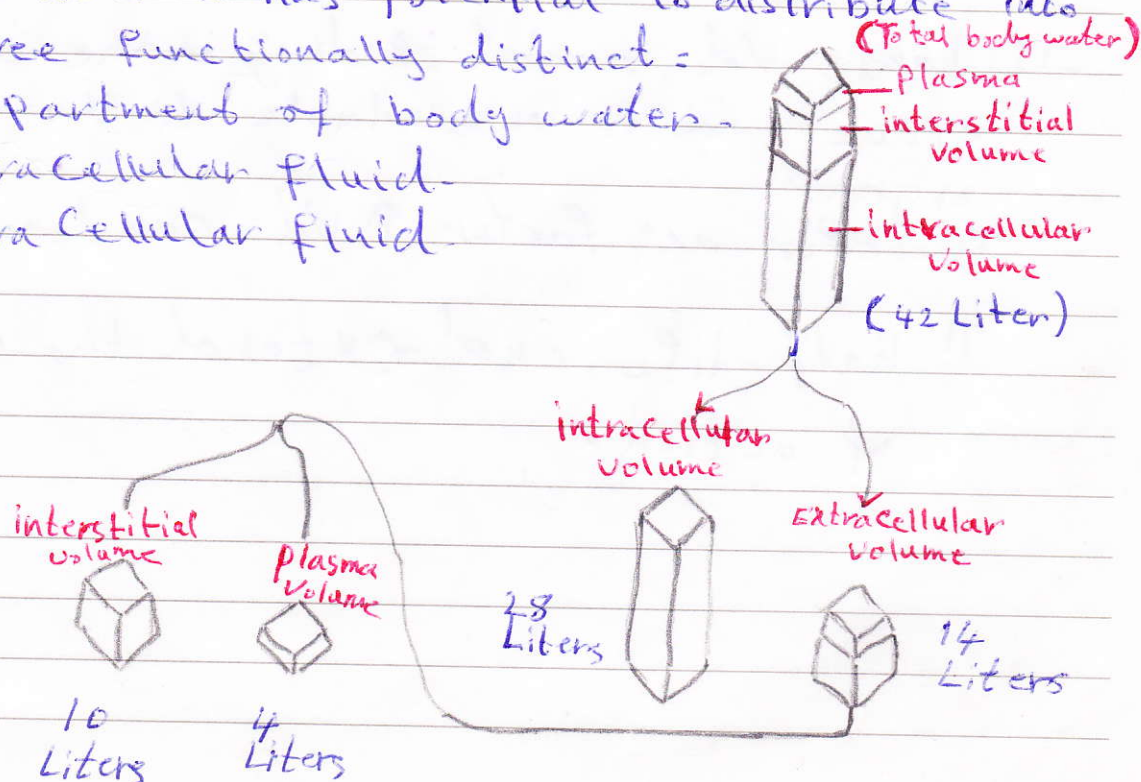 has potential to distribute into
ree functionally distinct =
partment of body water.
ra cellular fluid.
ra cellular fluid.
(Total body water)
plasma
interstitial
volume
intracellular
volume
(42 Liter)
intracellular
volume
Extracellular
volume
interstitial
volume
plasma
volume
28
Liters
14
Liters
10
Liters
4
Liters